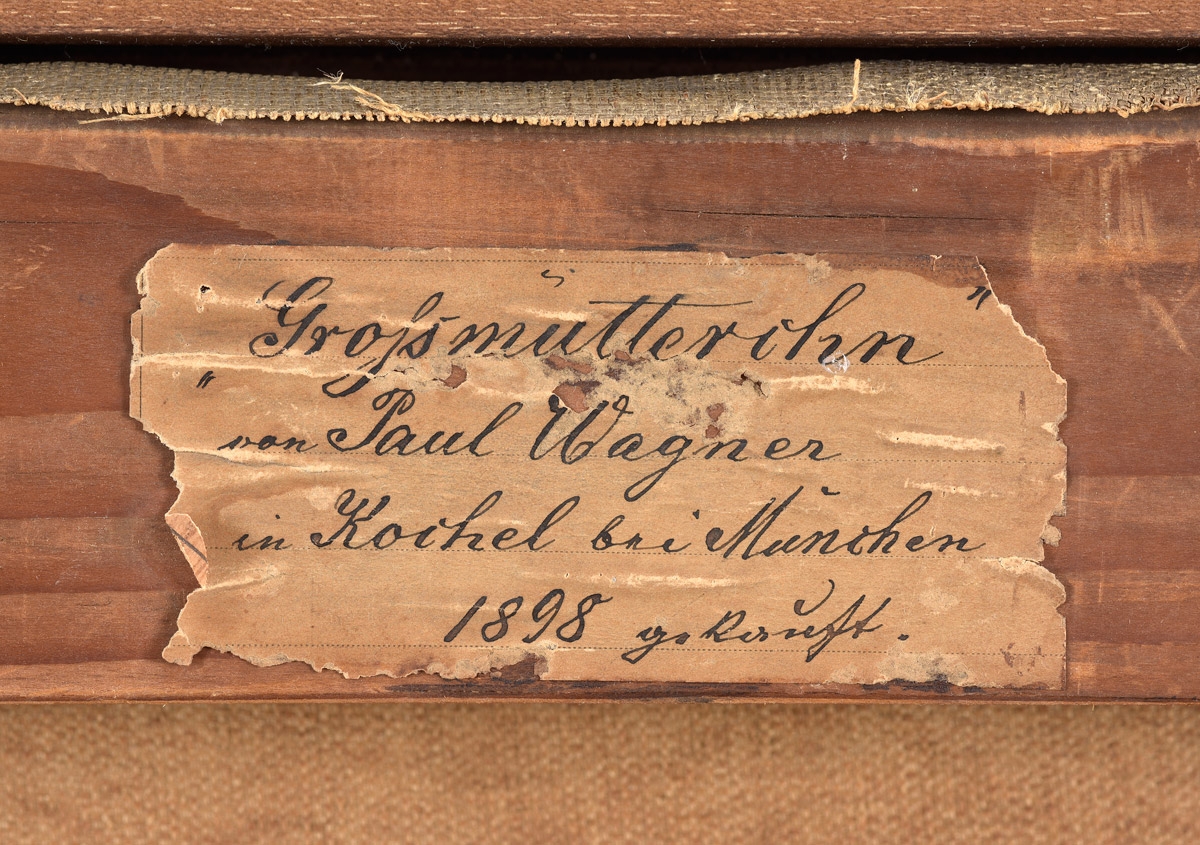 „Großmütterchn"
von Paul Wagner
in Kochel bei München
1898 gekauft.